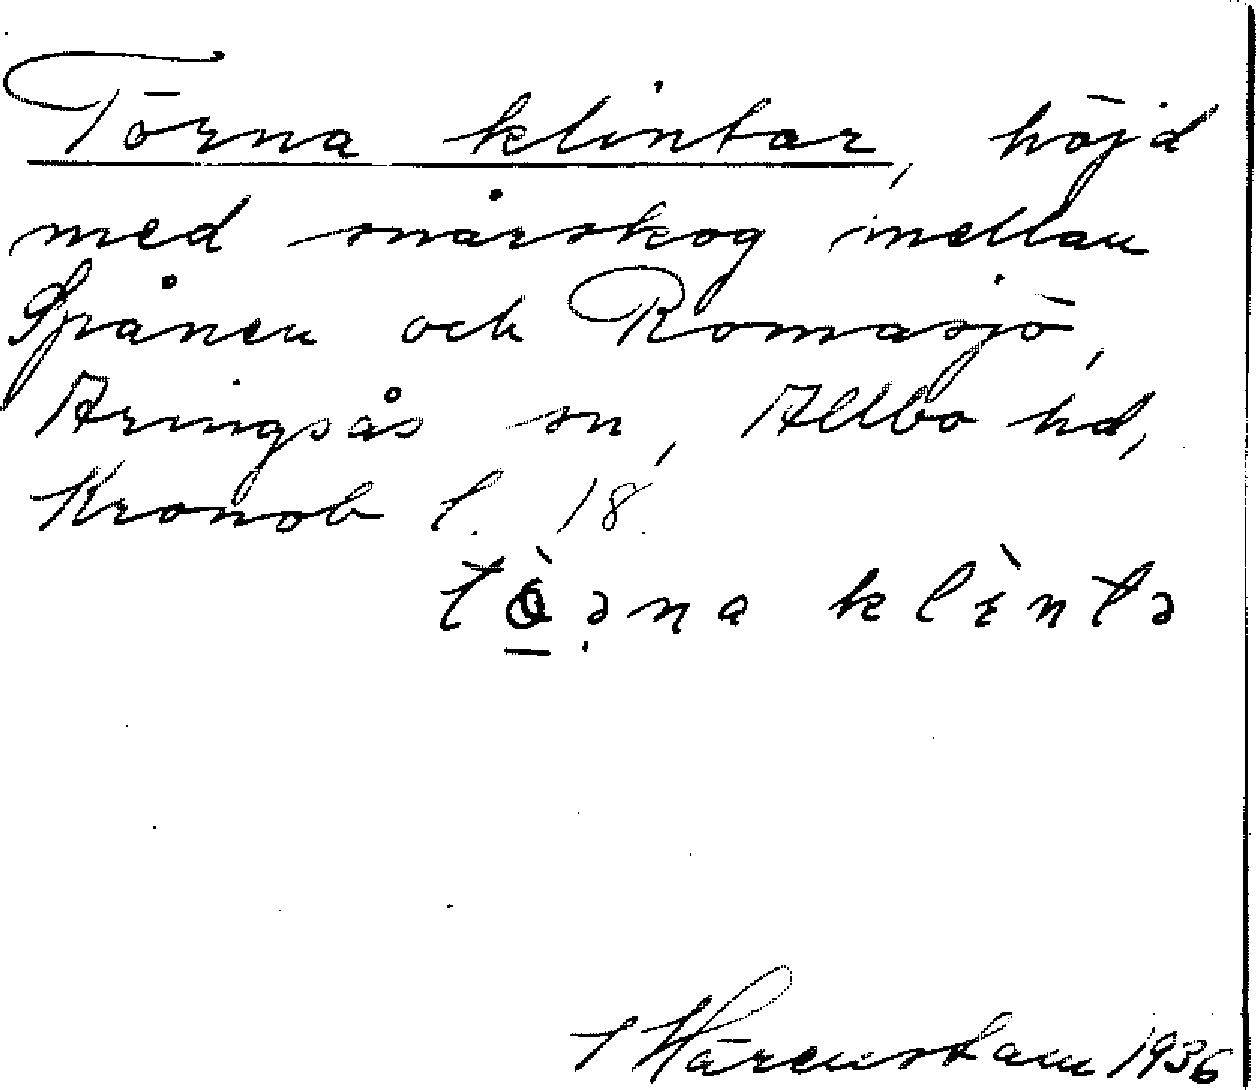 Törna klintar, höjd
med snårskog mellan
Spånen och Romasjö,
Aringsås sn, Allbo hd,
Kronob l. 18.
tö̀əna klìntə
Härenstam 1936